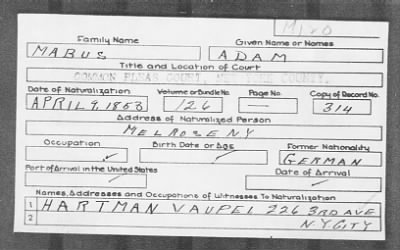 M120
Family Name Given Name or Names
MABUS ADAM
Title and Location of Court
COMMON PLEAS COURT, NEW YORK COUNTY.
Date of Naturalization Volume or Bundle No. Page No. Copy of Record No.
APRIL 9, 1853 126 — 314
Address of Naturalized Person
MELROSE NY
Occupation Birth Date or Age Former Nationality
GERMAN
Port of Arrival in the United States Date of Arrival
Names, Addresses and Occupations of Witnesses To Naturalization
1 HARTMAN VAUPEL 226 3RD AVE
2 N.Y. CITY